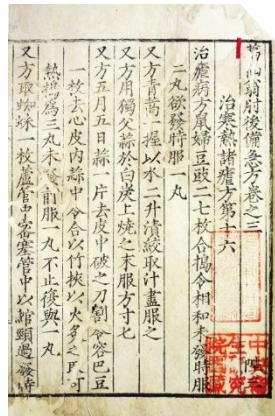 葛仙翁肘後備急方卷之三
治寒熱諸瘧方第十六
治瘧病方鼠婦豆豉二七枚合搗令相和未發時服
二丸欲發時服一丸
又方青蒿一握以水二升漬絞取汁盡服之
又方用獨父蒜於白炭上燒之末服方寸匕
又方五月五日蒜一片去皮中破之刀割令容巴豆
一枚去心皮內蒜中令合以竹挾以火炙之取可
熱搗為三丸未發前服一丸不止復與一丸
又方取蜘蛛一枚蘆管中密塞管中以綰頸過發時